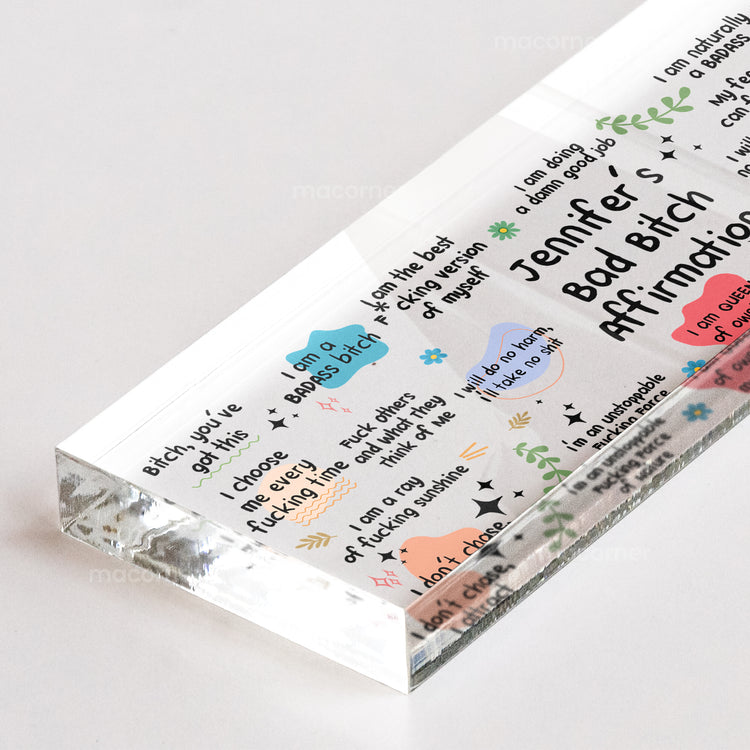 macorner
macorner
macorner
macorner
I am naturally
a BADASS
can
I will
I am doing
a damn good job
Jennifer's
Bad Bitch
Affirmation
I am the best
F*cking version
of myself
I am QUEEN
of
I am a
BADASS bitch
I will do no harm,
I'll take no shit
I'm an unstoppable
Fucking Force
Bitch, you've
got this
Fuck others
and what they
think of Me
I choose
me every
fucking time
I am a ray
of fucking sunshine
I don't chase,
I'm an unstoppable
Fucking Force
of nature
I don't chase,
I attract